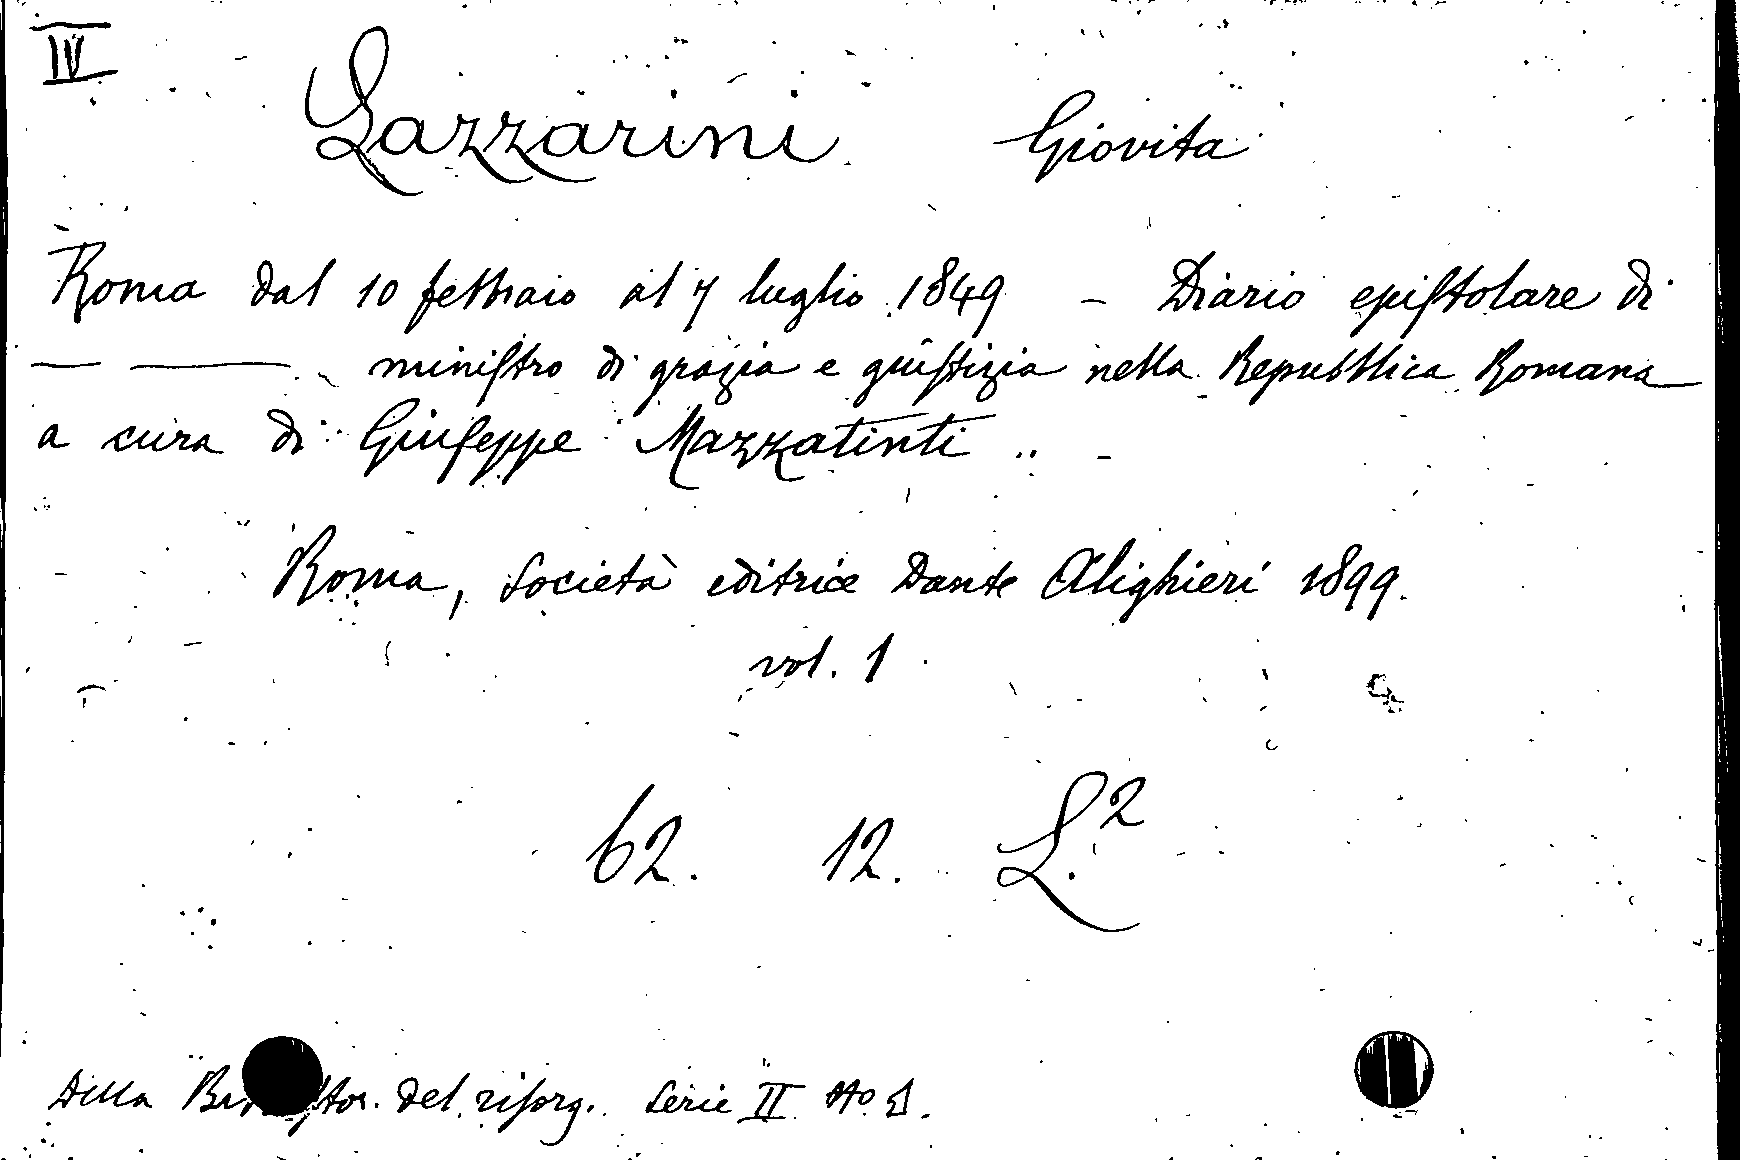 IV
Lazzarini Giovita
Roma dal 10 febbraio al 7 luglio 1849 - Diario epistolare di
— —— ministro di grazia e giustizia nella Repubblica Romana
a cura di Giuseppe Mazzatinti .. -
Roma, Società editrice Dante Alighieri 1899.
vol. 1
62. 12. L.2
Della stor. del risorg. Serie II No 1.